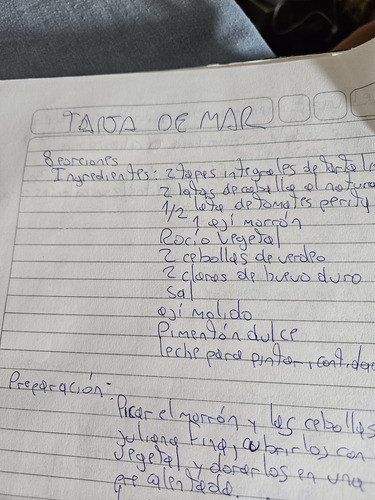 TARTA DE MAR
8 porciones
Ingredientes: 2 tapas integrales de tarta
2 latas de caballa al natura
1/2 lata de tomates perita
1 ají morrón
Rocío vegetal
2 cebollas de verdeo
2 claras de huevo duro
sal
ají molido
Pimentón dulce
leche para pintar, cantidad
Preparación:
Picar el morrón y las cebollas
juliana fina, cubrirlos con
vegetal y dorarlos en una
precalentada.